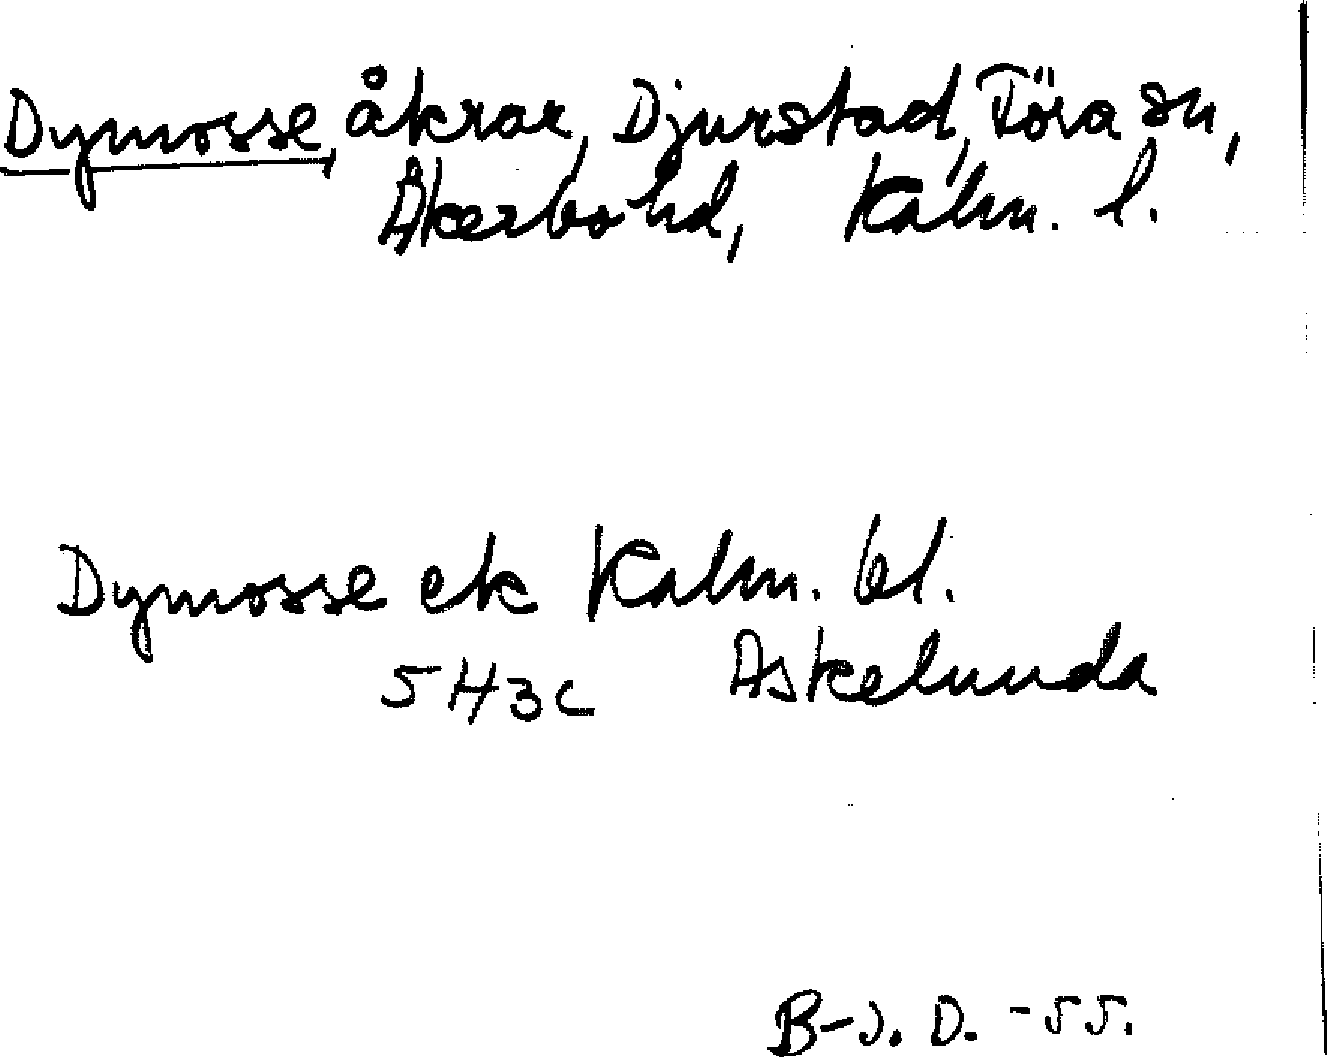 Dymosse, åkrar, Djurstad, Föra sn,
Åkerbo hd, Kalm. l.
Dymosse ek Kalm. bl.
5H3c Askelunda
B-J. D. -55.